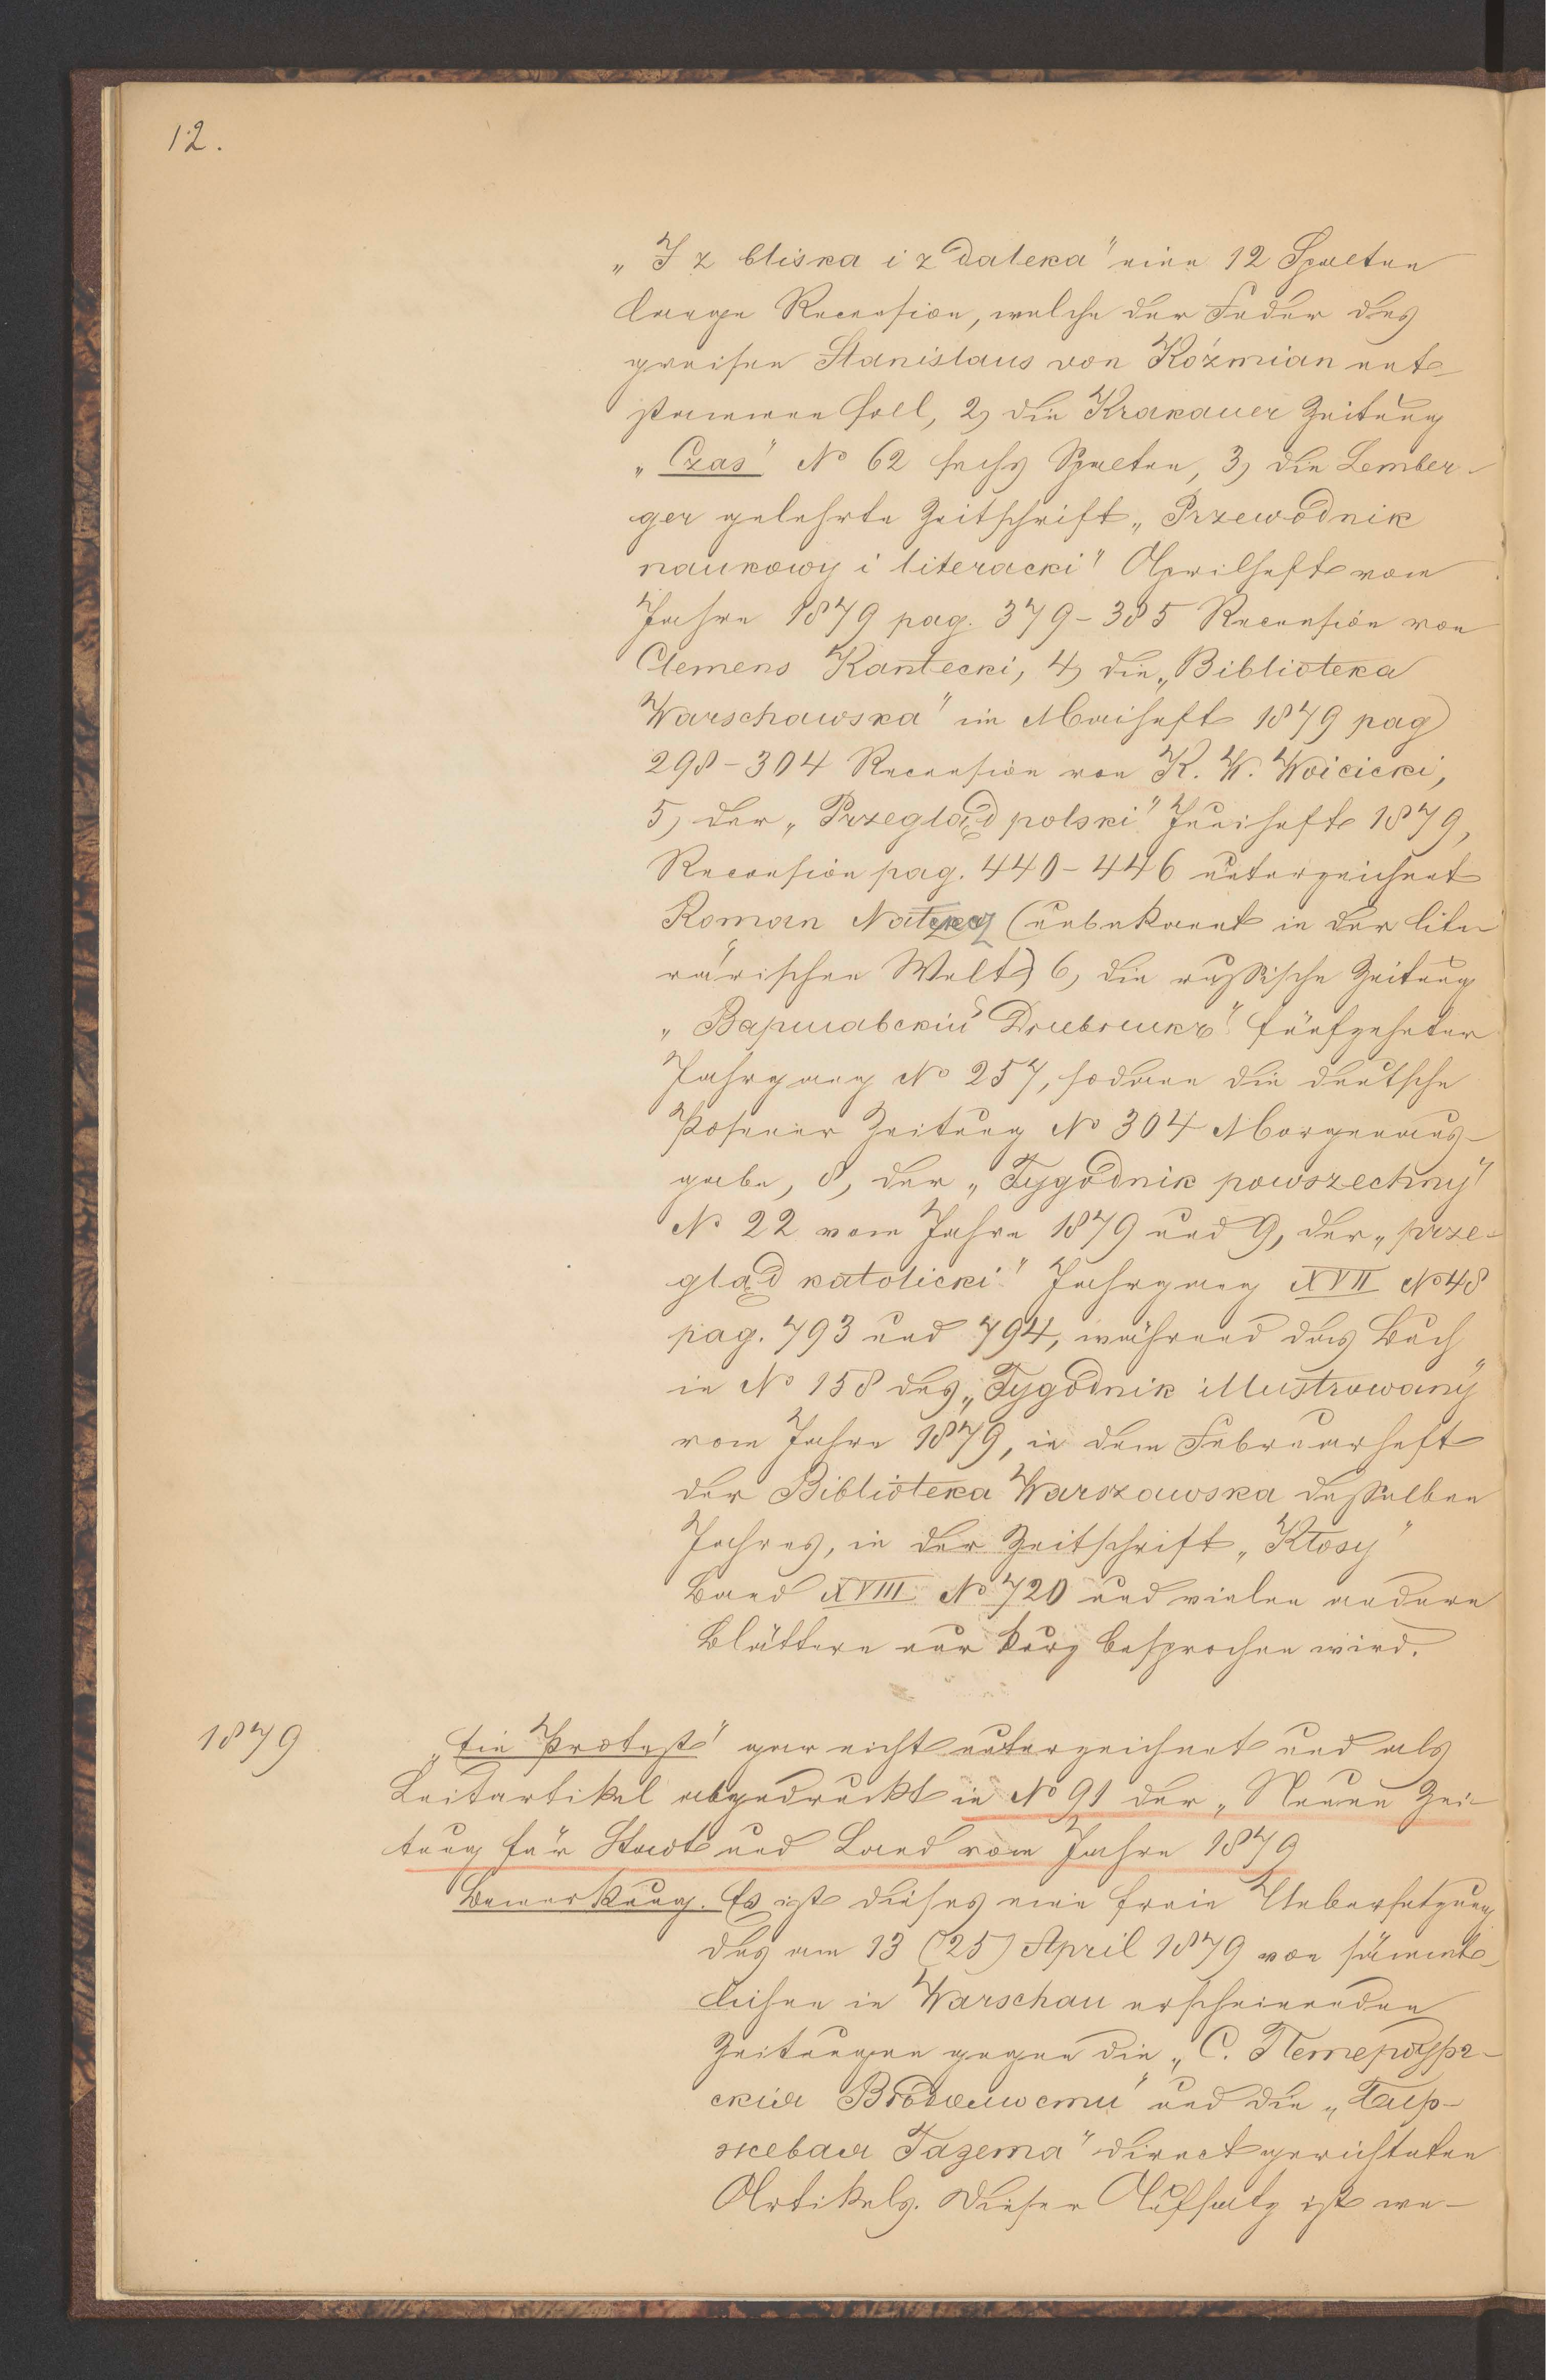 12.
„I z bliska i z daleka" eine 12 Spalten
lange Recension, welche der Feder des
greisen Stanislaus von Koźmian ent-
stammen soll, 2) die Krakauer Zeitung
„Czas" No 62 sechs Spalten, 3) die Lember-
ger gelehrte Zeitschrift „Przewodnik
naukowy i literacki" Aprilheft vom
Jahre 1879 pag. 379-385 Recension von
Clemens Kantecki, 4) die „Biblioteka
Warschawska" im Maiheft 1879 pag
298-304 Recension von K. W. Woicicki,
5) der „Przegląd polski" Juniheft 1879,
Recension pag. 440-446 unterzeichnet
Roman (unbekannt in der lite-
rärischen Welt) 6) die russische Zeitung
„Варшавскій Дневникъ" fünfzehnter
Jahrgang No 257, sodann die deutsche
Posener Zeitung No 304 Morgenaus-
gabe, 8, der „Tygodnik powszechny"
No 22 vom Jahre 1879 und 9, der „prze-
gląd katolicki" Jahrgang XVII No 48
pag. 793 und 794, während das Buch
in No 158 des „Tygodnik illustrowany"
vom Jahre 1879, in dem Februarheft
der Biblioteka Warszawska desselben
Jahres, in der Zeitschrift „Kłosy"
Band XVIII No 720 und vielen andern
Blättern nur kurz besprochen wird.
1879
„Ein Protest" gar nicht unterzeichnet und als
Leitartikel abgedruckt in No 91 der „Neuen Zei-
tung für Stadt und Land vom Jahre 1879
Bemerkung. Es ist dieses eine freie Uebersetzung
des am 13 (25) April 1879 von sämmt-
lichen in Warschau erscheinenden
Zeitungen gegen die „С. Петербург-
скія Вѣдомости" und die „Бир-
жевая Газета" direct gerichteten
Artikels. Dieser Aufsatz ist we-